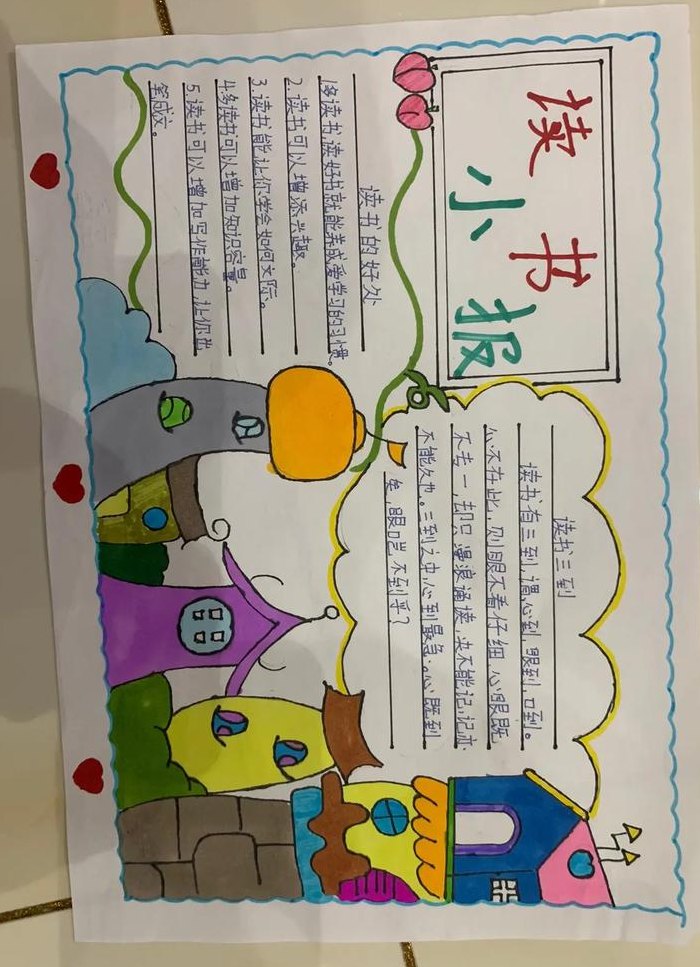 读书
小报
读书的好处
1.多读书,读好书,就能养成爱学习的习惯。
2.读书可以增添兴趣。
3.读书能让你学会如何交际。
4.多读书可以增加知识容量。
5.读书可以增加写作能力,让你出
笔成文。
读书三到
读书有三到,谓心到,眼到,口到。
心不在此,则眼不看仔细,心眼既
不专一,却只漫浪诵读,决不能记,记亦
不能久也。三到之中,心到最急,心既到
矣,眼口岂不到乎?